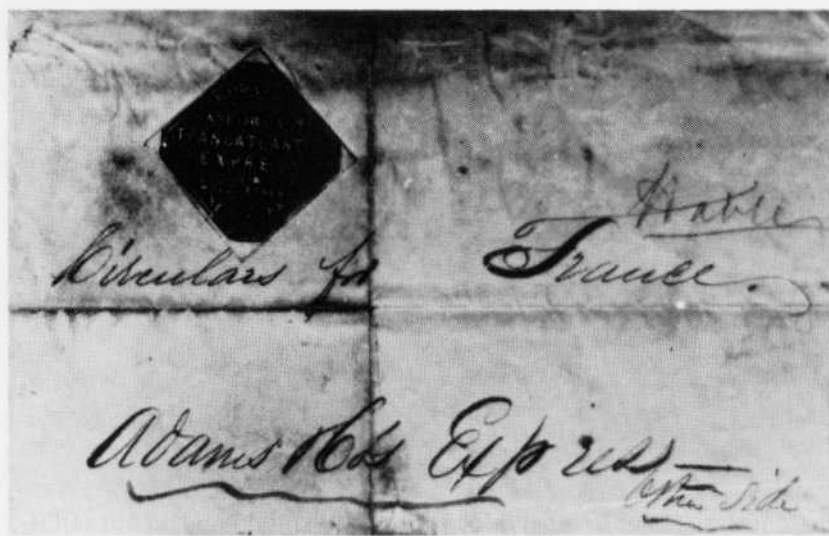 TRANSATLANT
EXPRE
Havre
Circulars for France.
Adams & Co's Express
Other side